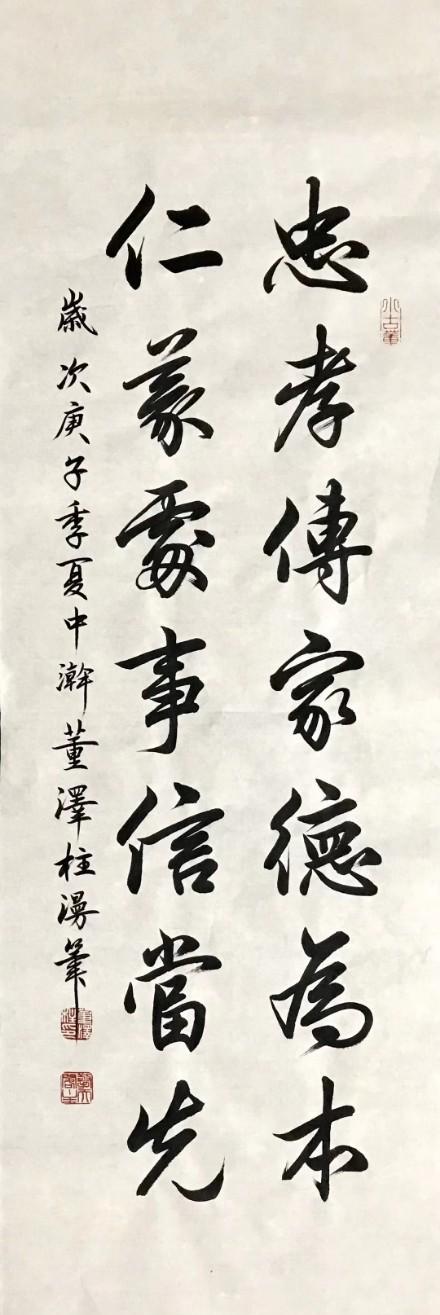 忠孝傳家德為本
仁義處事信當先
歲次庚子季夏中澣董澤柱漫筆